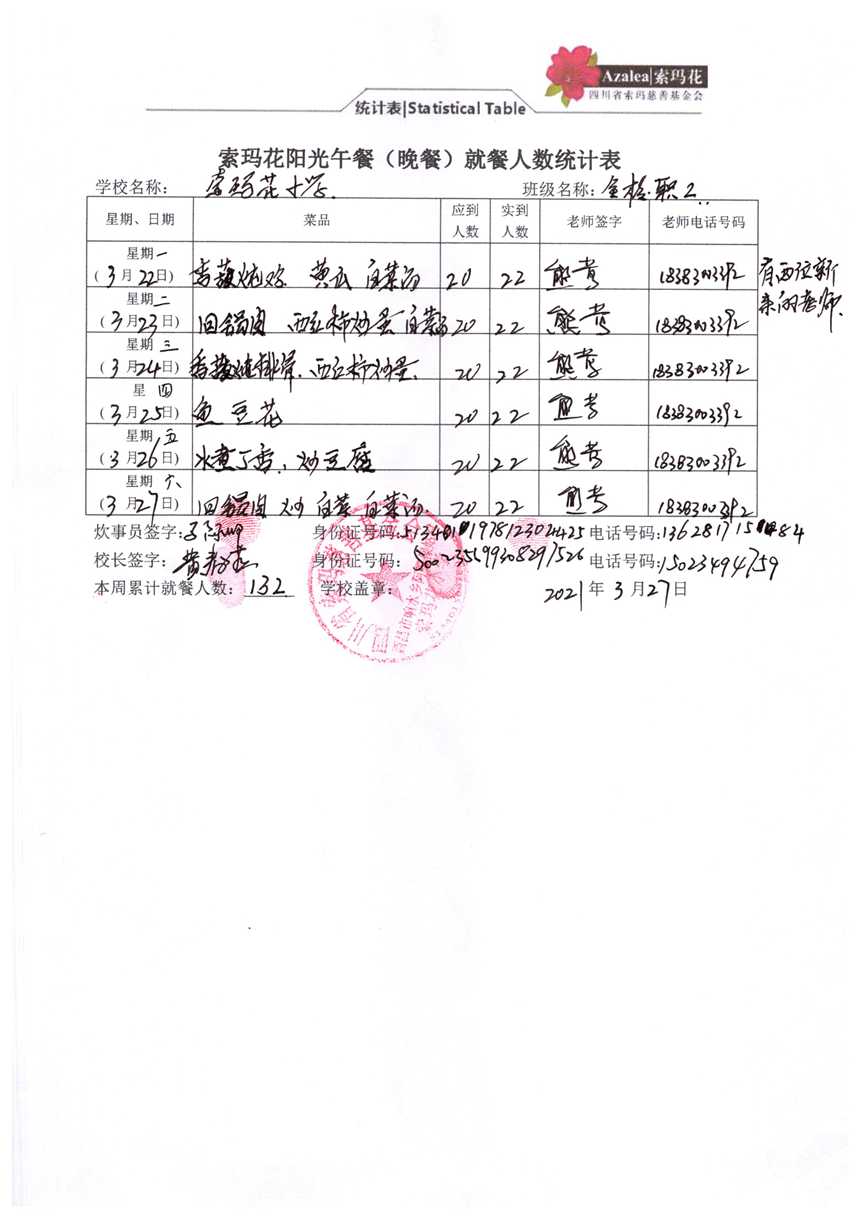 Azalea|索玛花
四川省索玛慈善基金会
统计表|Statistical Table
索玛花阳光午餐（晚餐）就餐人数统计表
学校名称： 索玛花小学 班级名称：全校.职工
星期、日期 菜品 应到人数 实到人数 老师签字 老师电话号码
星期一 (3月22日) 香菇炖鸡 黄瓜 白菜汤 20 22 18383003392 有两位新来的老师.
星期二 (3月23日) 回锅肉 西红柿炒蛋 白菜汤 20 22 18383003392
星期三 (3月24日) 香菇炖排骨.西红柿炒蛋. 20 22 18383003392
星 四 (3月25日) 鱼 豆花 20 22 18383003392
星期五 (3月26日) 水煮 炒豆腐 20 22 18383003392
星期六 (3月27日) 回锅肉 炒白菜 白菜汤 20 22 18383003392
炊事员签字： 身份证号码: 电话号码:
校长签字： 身份证号码： 电话号码:15023494759
本周累计就餐人数：132 学校盖章： 2021年3月27日